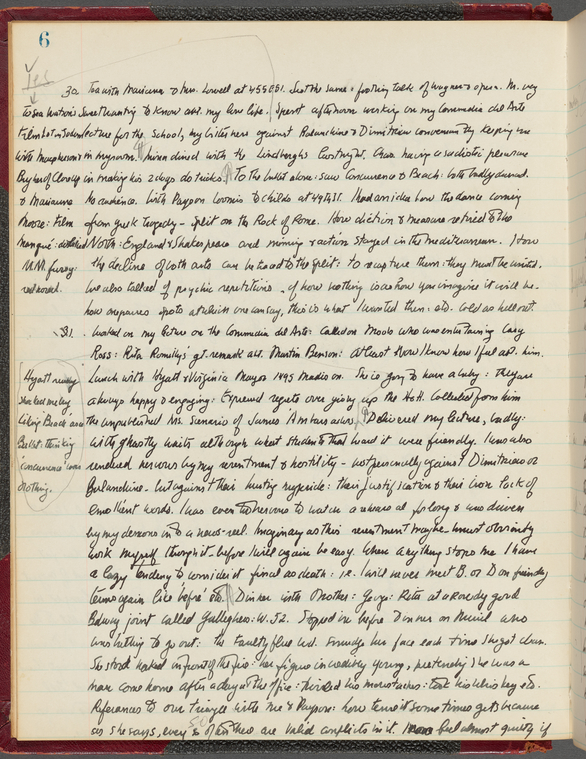 6
Yes
30 Tea with Marianna & Mrs. Lowell at 455 E 51. Just the same: footing talk of Wagner & opera. M. very
to see Watson Sweet wanting to know abt. my love life. Spent afternoon working on my Commedia del Arte
lecture for the School, my bitterness against Balanchine & Dimitriew conveniently keeping me
with in my room. dined with the Lindberghs Courtright. Chas. having a sadistic pleasure
in making his 2 dogs do tricks. To the ballet alone: Saw Concurrence & Beach: both badly danced.
& Marianna No audience. With Payson Loomis to Childs at 49th St. I had an idea how the dance coming
Moore: Film of a Greek tragedy - split on the Rock of Rome. How diction & measure retired to the
North: England & Shakespeare and miming & action stayed in the mediterranean. How
M.M. furry: the decline of both arts can be traced to the split: to recapture them: they must be united.
red nosed. We also talked of psychic repetitions - of how nothing is as how you imagine it will be -
how one pares spots at which one can say, this is what I wanted then: etc. Cold as hell out.
31. Worked on my lecture on the Commedia del Arte: Called on Muds who was entertaining Cary
Ross: Rita Romilly's gt. remark abt. Martin Benson: At least now I know how I feel abt. him.
Hyatt really Lunch with Hyatt & Virginia Mayor 1495 Madison. She is going to have a baby: they are
shocked me by always happy & engaging: Expressed regrets over giving up the H&H. Collected from him
liking Beach and the unpublished Ms. Scenario of James' Ambassadors. Delivered my lecture, badly:
Ballet: thinking with ghastly waits although what students that heard it were friendly. I was also
'Concurrence' was rendered nervous by my resentment & hostility - not personally against Dimitriew or
nothing. Balanchine - but against their hurting my pride: their justification & their own lack of
emollient words. I was even too nervous to watch a rehearsal for long & was driven
by my demons into a news-reel. Imaginary as this resentment may be - I must obviously
work myself through it before I will again be easy. When anything stops me I have
a lazy tendency to consider it final as death: i.e. I will never meet B. or D. on friendly
terms again like 'before' etc. Dinner with Mother: George: Rita at a rowdy good
Bdway joint called Gallaghers: W. 52. Stopped in before Dinner on Muriel who
was bathing to go out: the faulty flue wd. smudge her face each time she got clean.
She stood naked in front of the fire: her figure incredibly young, pretending she was a
man come home after a day at the office: twirled his moustaches: took his whiskey etc.
References to our triangle with me & Payson: how tense it sometimes gets because
as she says, every so often there are valid conflicts in it. I feel almost guilty if